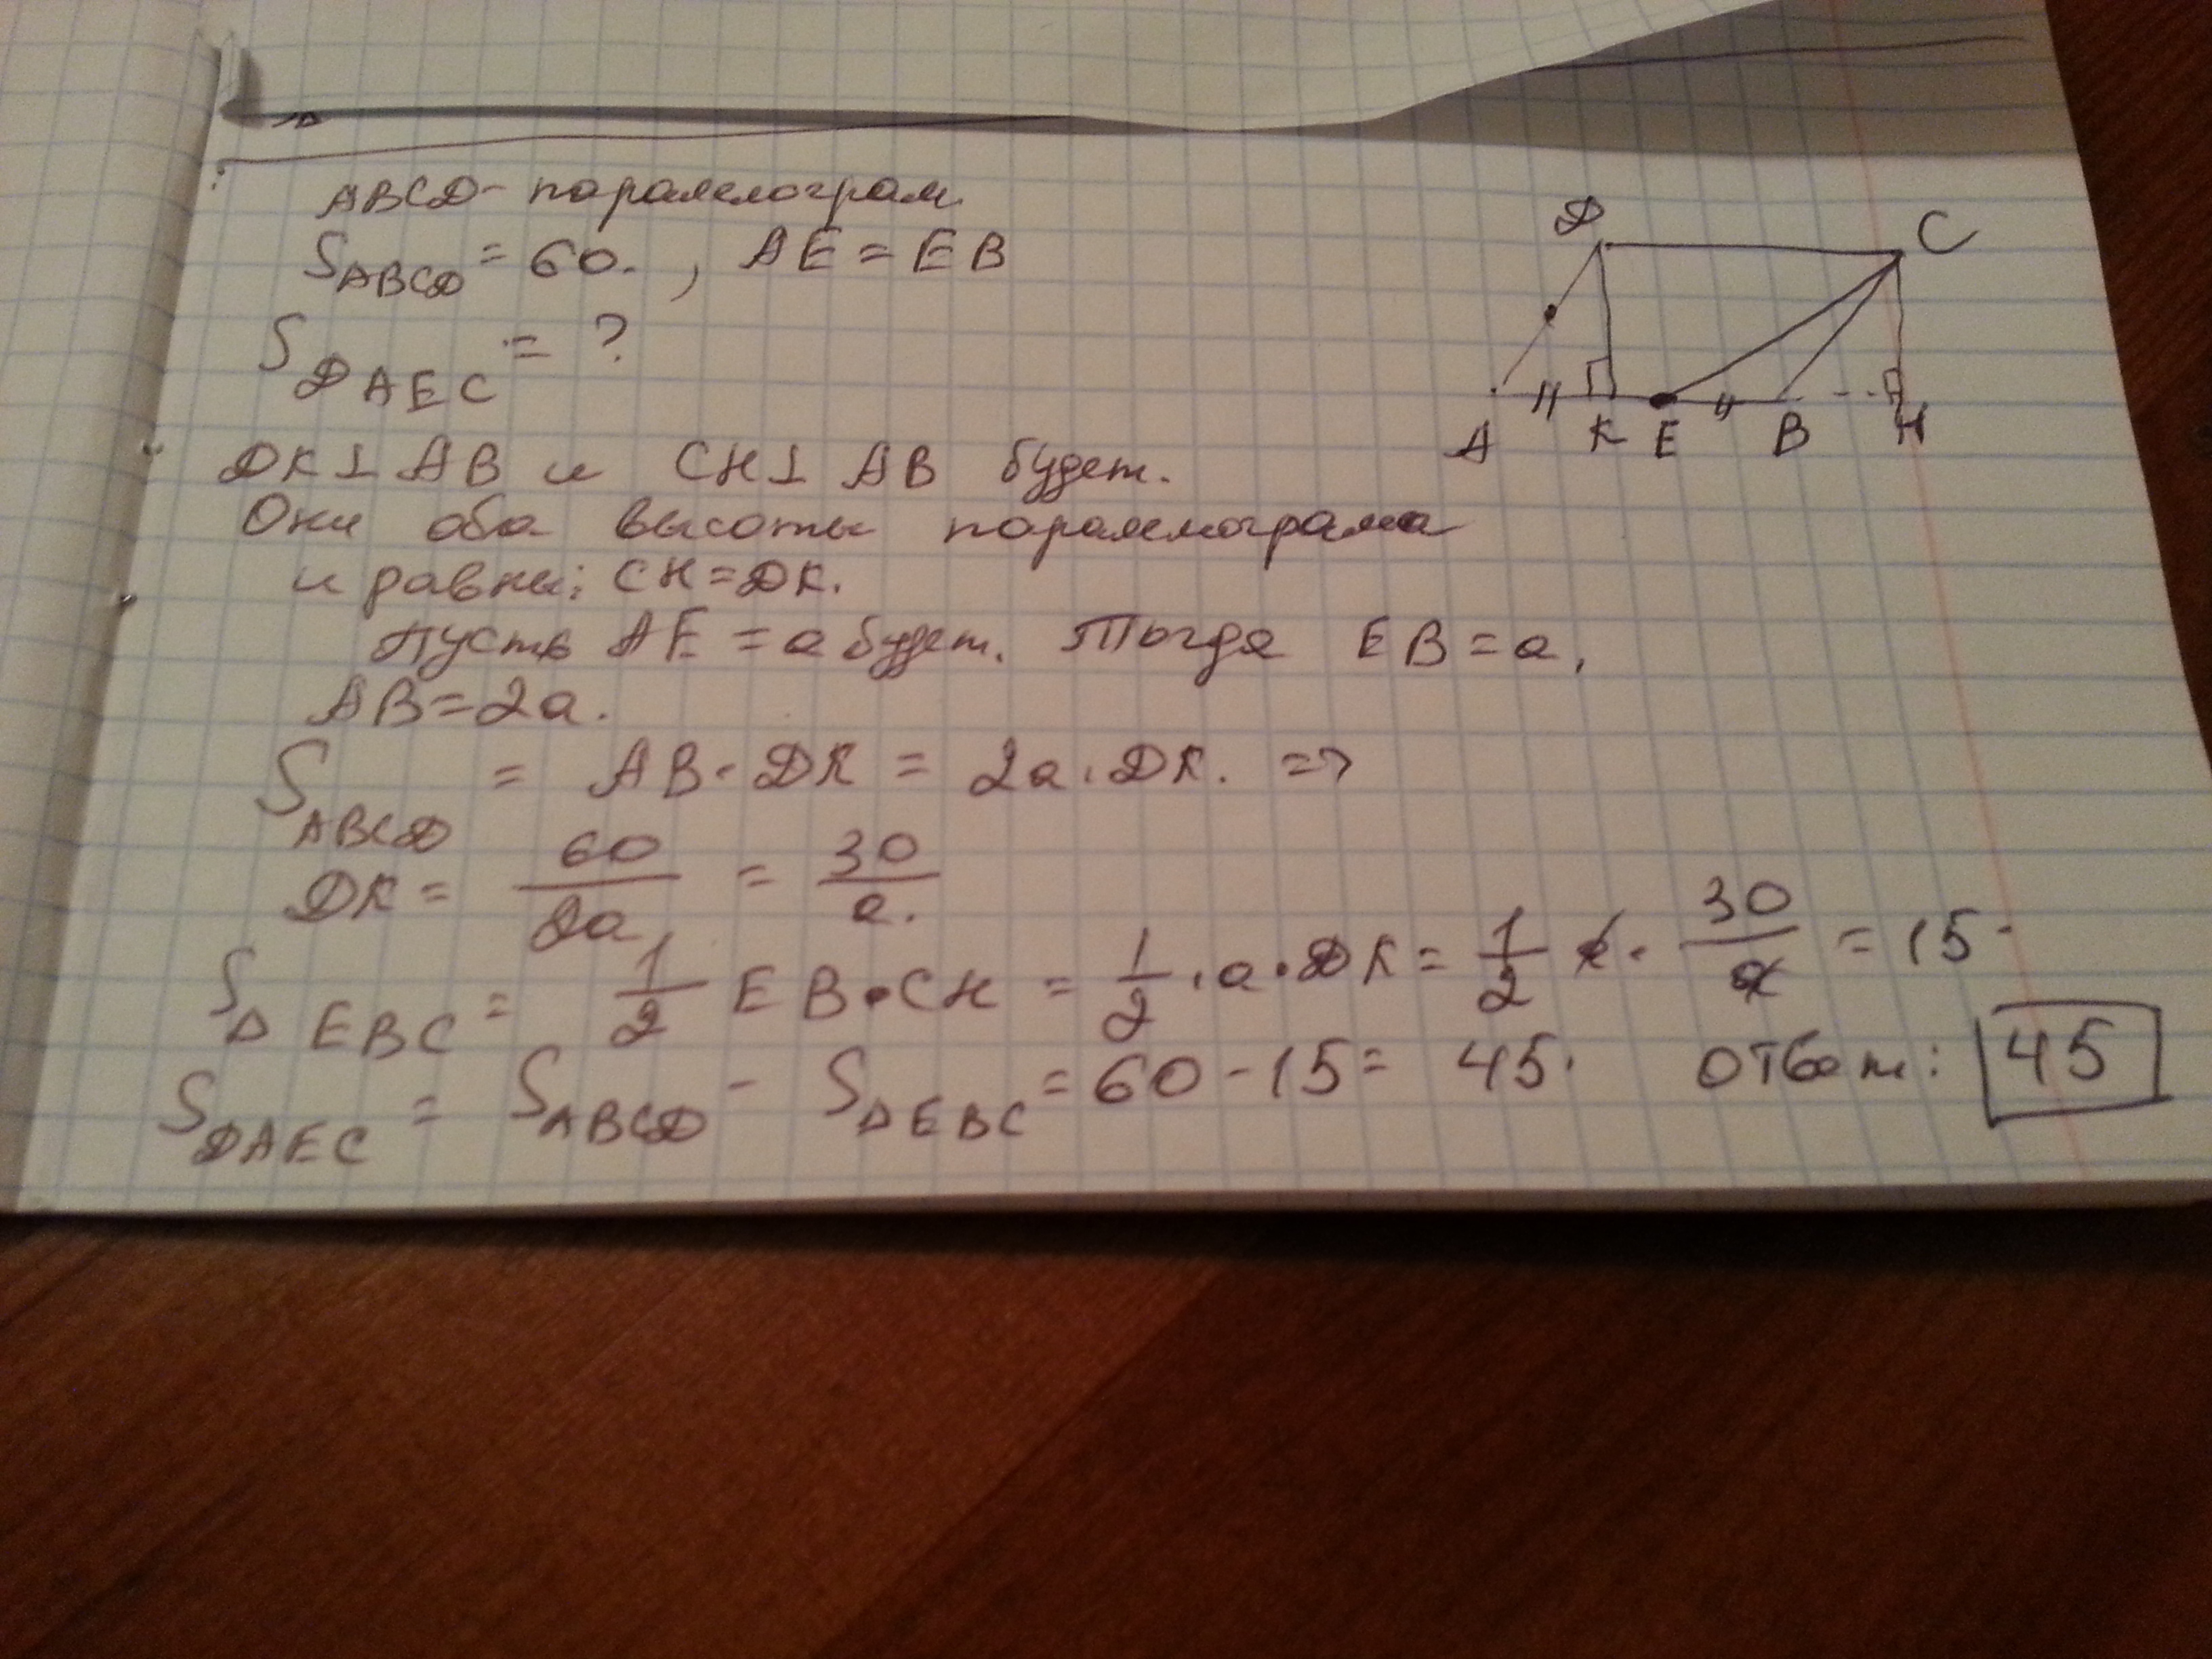 ABCD - параллелограм
S ABCD = 60. , AE = EB
S DAEC = ?
D
C
A
K
E
B
H
DK ⊥ AB и CH ⊥ AB будет.
Они оба высоты параллелограма
и равны: CH = DK.
Пусть AE = a будет. Тогда EB = a,
AB = 2a.
S ABCD = AB · DK = 2a · DK. =>
DK = 60/2a = 30/a.
S Δ EBC = 1/2 EB · CH = 1/2 · a · DK = 1/2 a · 30/a = 15.
S DAEC = S ABCD - S Δ EBC = 60 - 15 = 45. Ответ: 45